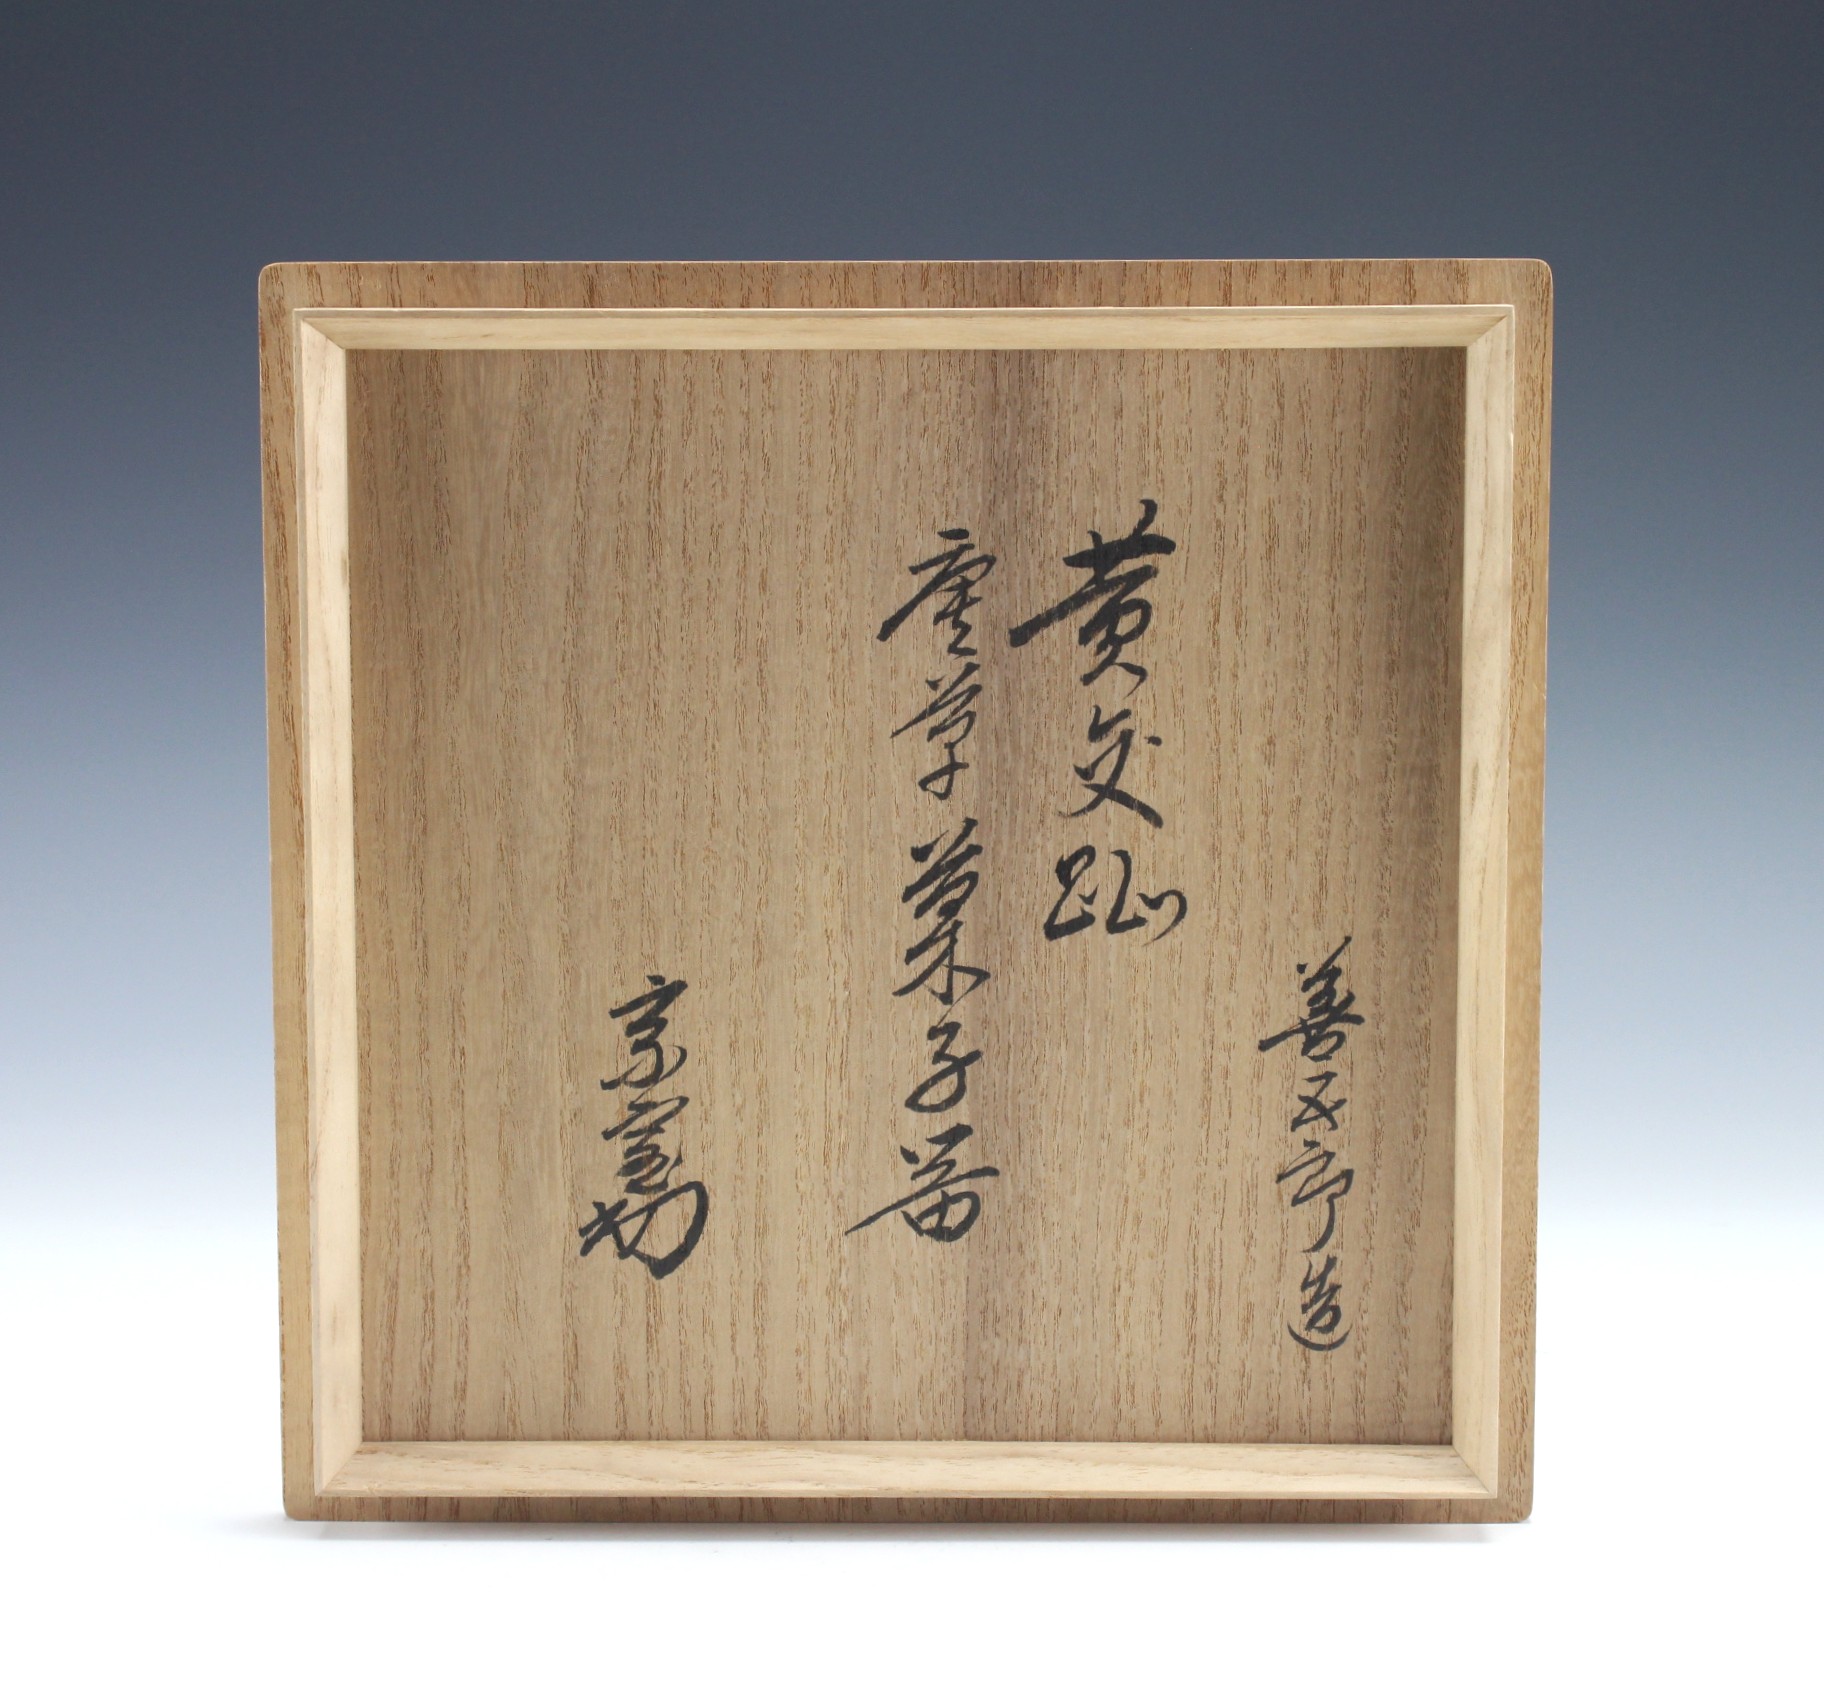 善五郎造
黄交趾
唐草菓子器
宗室